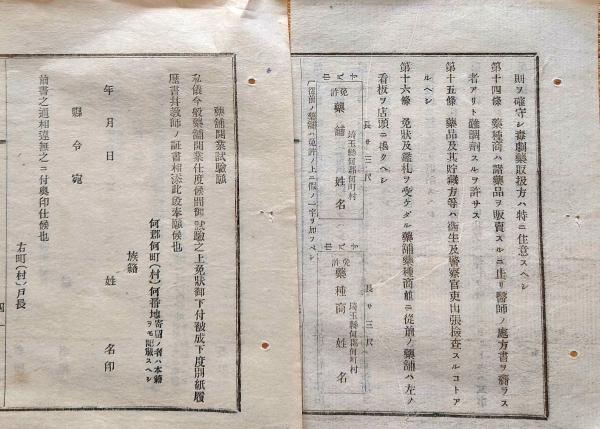 則ヲ確守シ毒劇藥取扱方ハ特ニ注意スヘシ
第十四條　藥種商ハ諸藥品ヲ販賣スルニ止リ醫師ノ處方書ヲ齎ラス
者アリト雖調劑スルヲ許サス
第十五條　藥品及其貯藏方等ハ衛生及警察官吏出張檢査スルコトア
ルヘシ
第十六條　免狀及鑑札ヲ受ケタル藥舖藥種商
從前ノ藥舖ハ左ノ
看板ヲ店頭ニ掲クヘシ
長サ三尺
巾八寸
免許
藥舖
埼玉縣何郡何町村
姓名
長サ三尺
巾八寸
免許
藥種商
埼玉縣何郡何町村
姓名
從前ノ藥舖ハ免許ノ上ニ假ノ一字ヲ加フヘシ
藥舖開業試驗願
私儀今般藥舖開業仕度候間御試驗之上免狀御下付被成下度別紙履
歷書幷敎師ノ証書相添此段奉願候也
何郡何町(村)何番地寄留ノ者ハ本籍ヲモ記載スヘシ
族籍
年月日
姓名印
縣令宛
前書之通相違無之ニ付奥印仕候也
右町(村)戸長
四